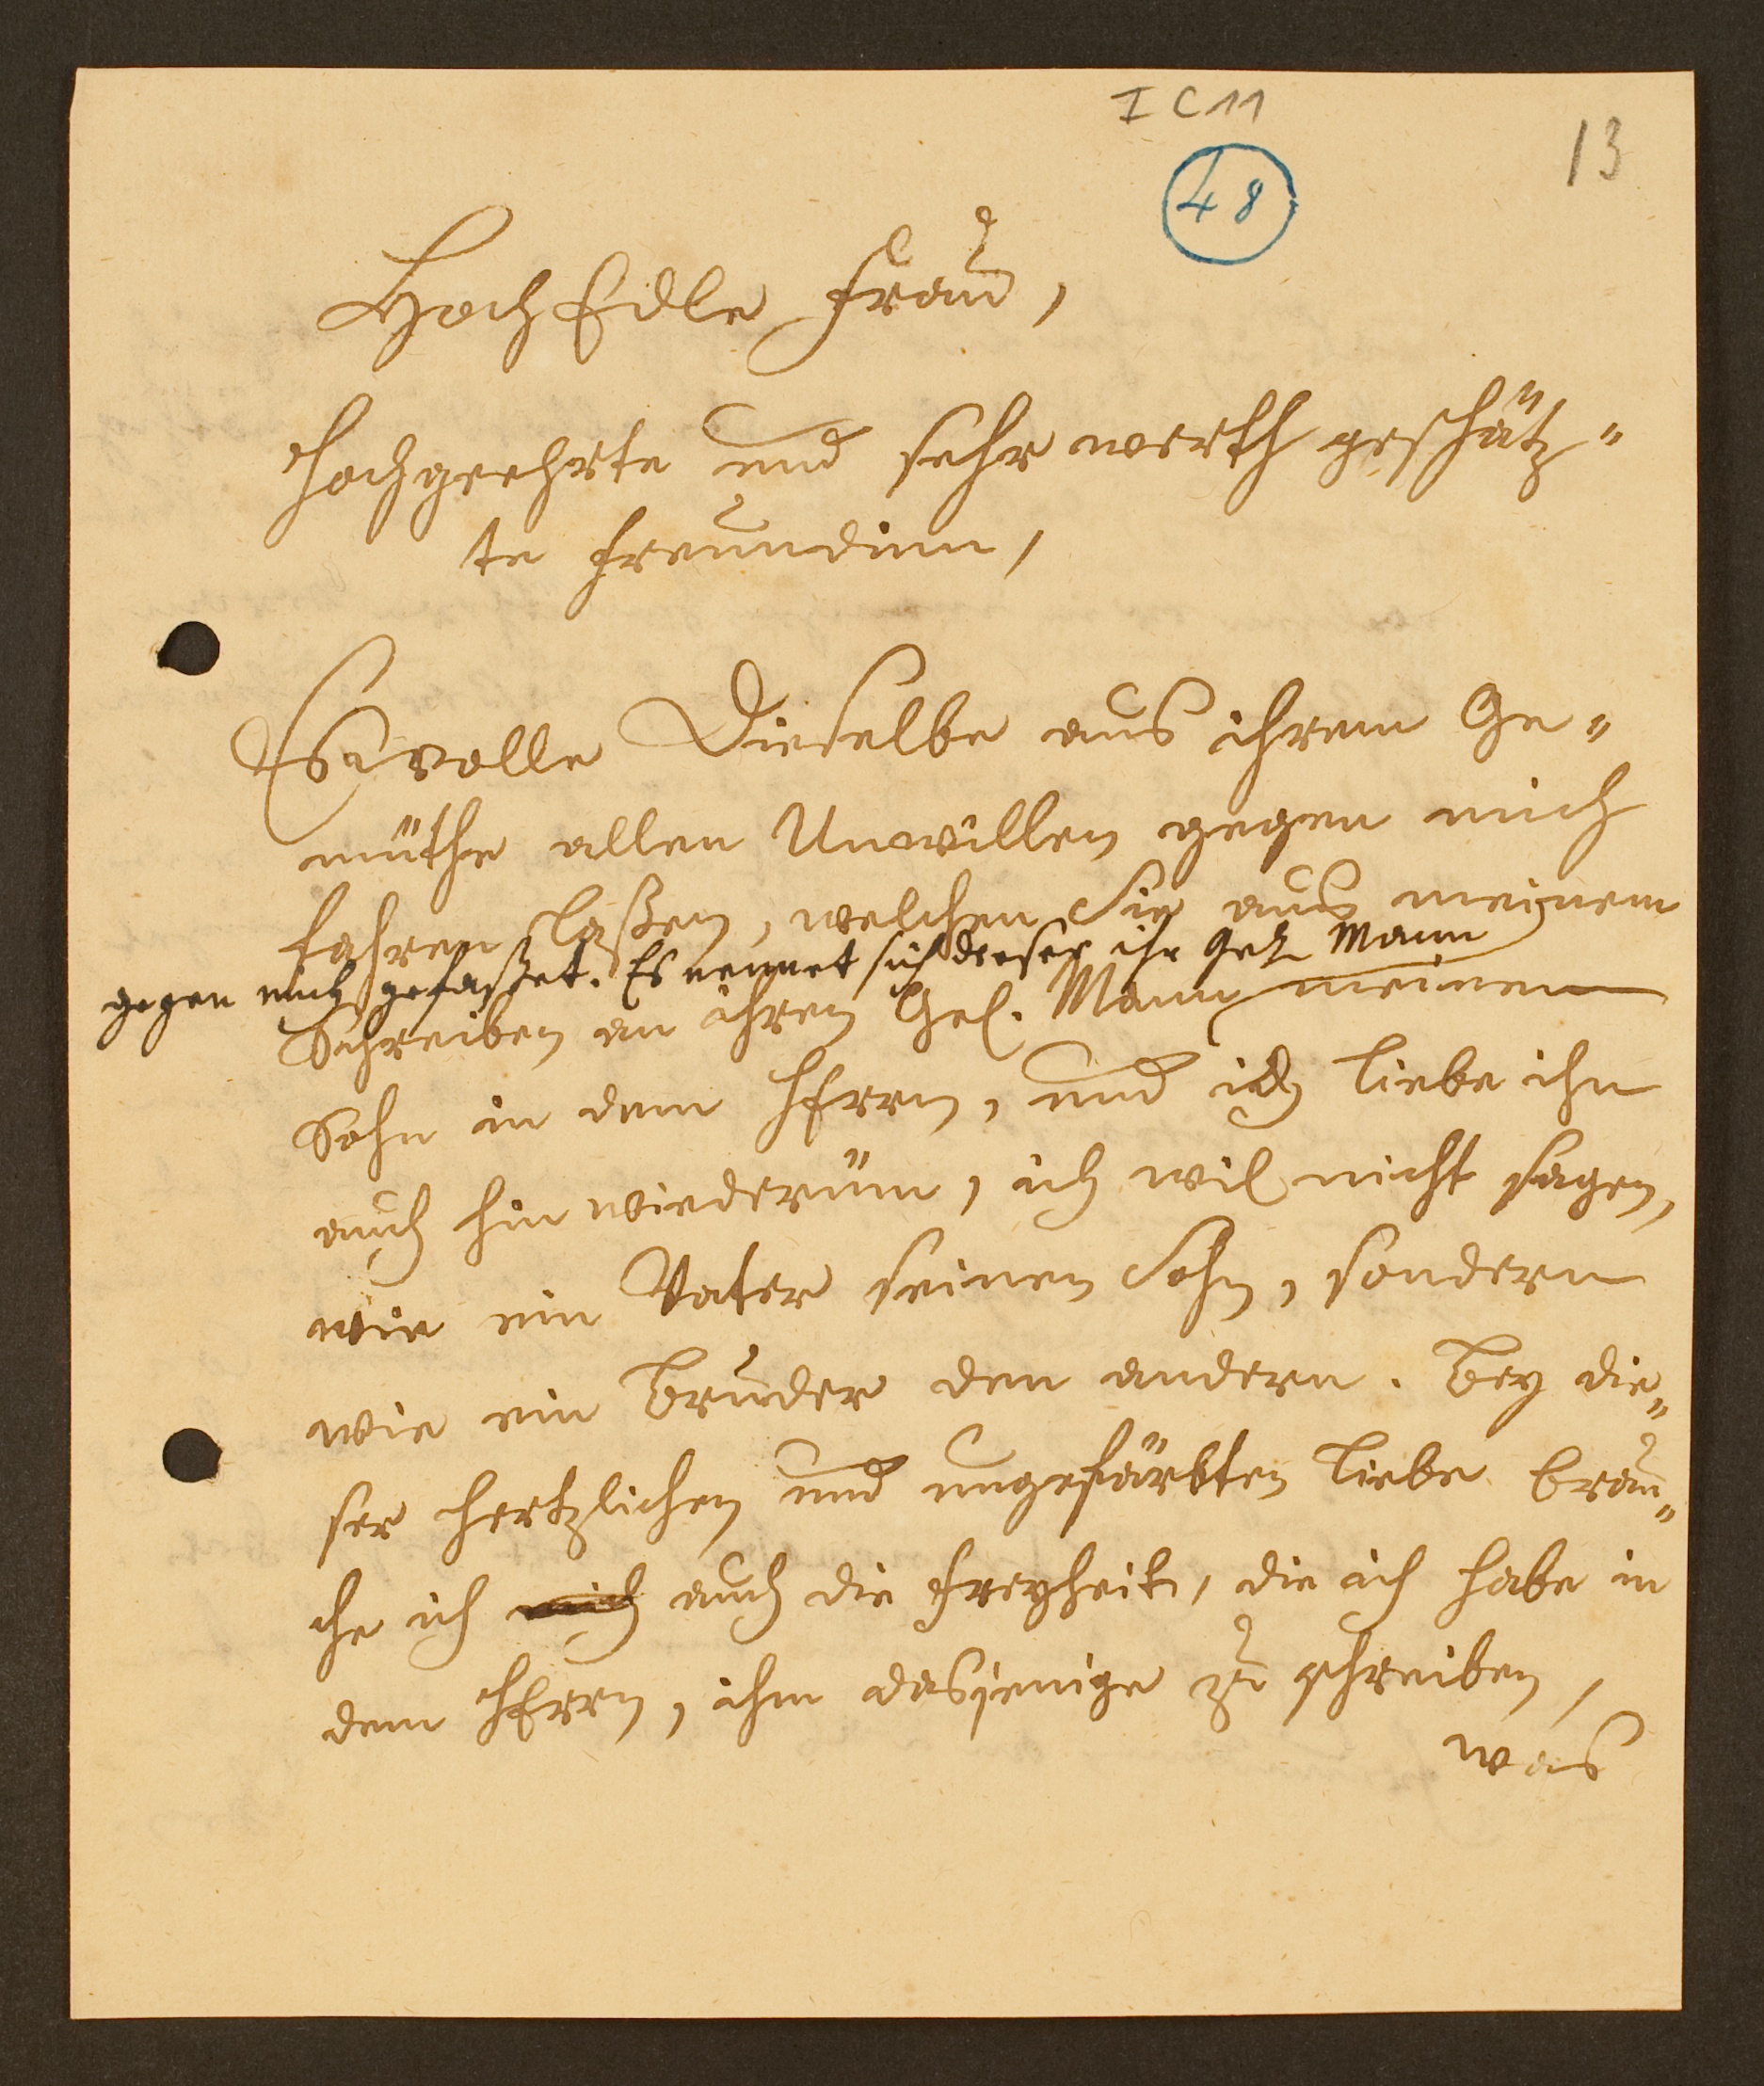 I C 11
13
48
HochEdle Frau,
Hochgeehrte und sehr werth geschätz-
te Freundinn,
Es wolle Dieselbe aus ihrem Ge-
müthe allen Unwillen gegen mich
fahren laßen, welchen Sie aus meinem
gegen mich gefaßet. Es nennet sich dieser ihr Gel. Mann
Schreiben an ihren Gel. Mann meinen
Sohn in dem HErrn, und ich liebe ihn
auch hin wiederüm, ich wil nicht sagen,
wie ein Vater seinen Sohn, sondern
wie ein Bruder den andern. Bey die-
ser hertzlichen und ungefärbten Liebe brau-
che ich mich auch die Freyheit, die ich habe in
dem HErrn, ihm dasjenige zu schreiben,
was